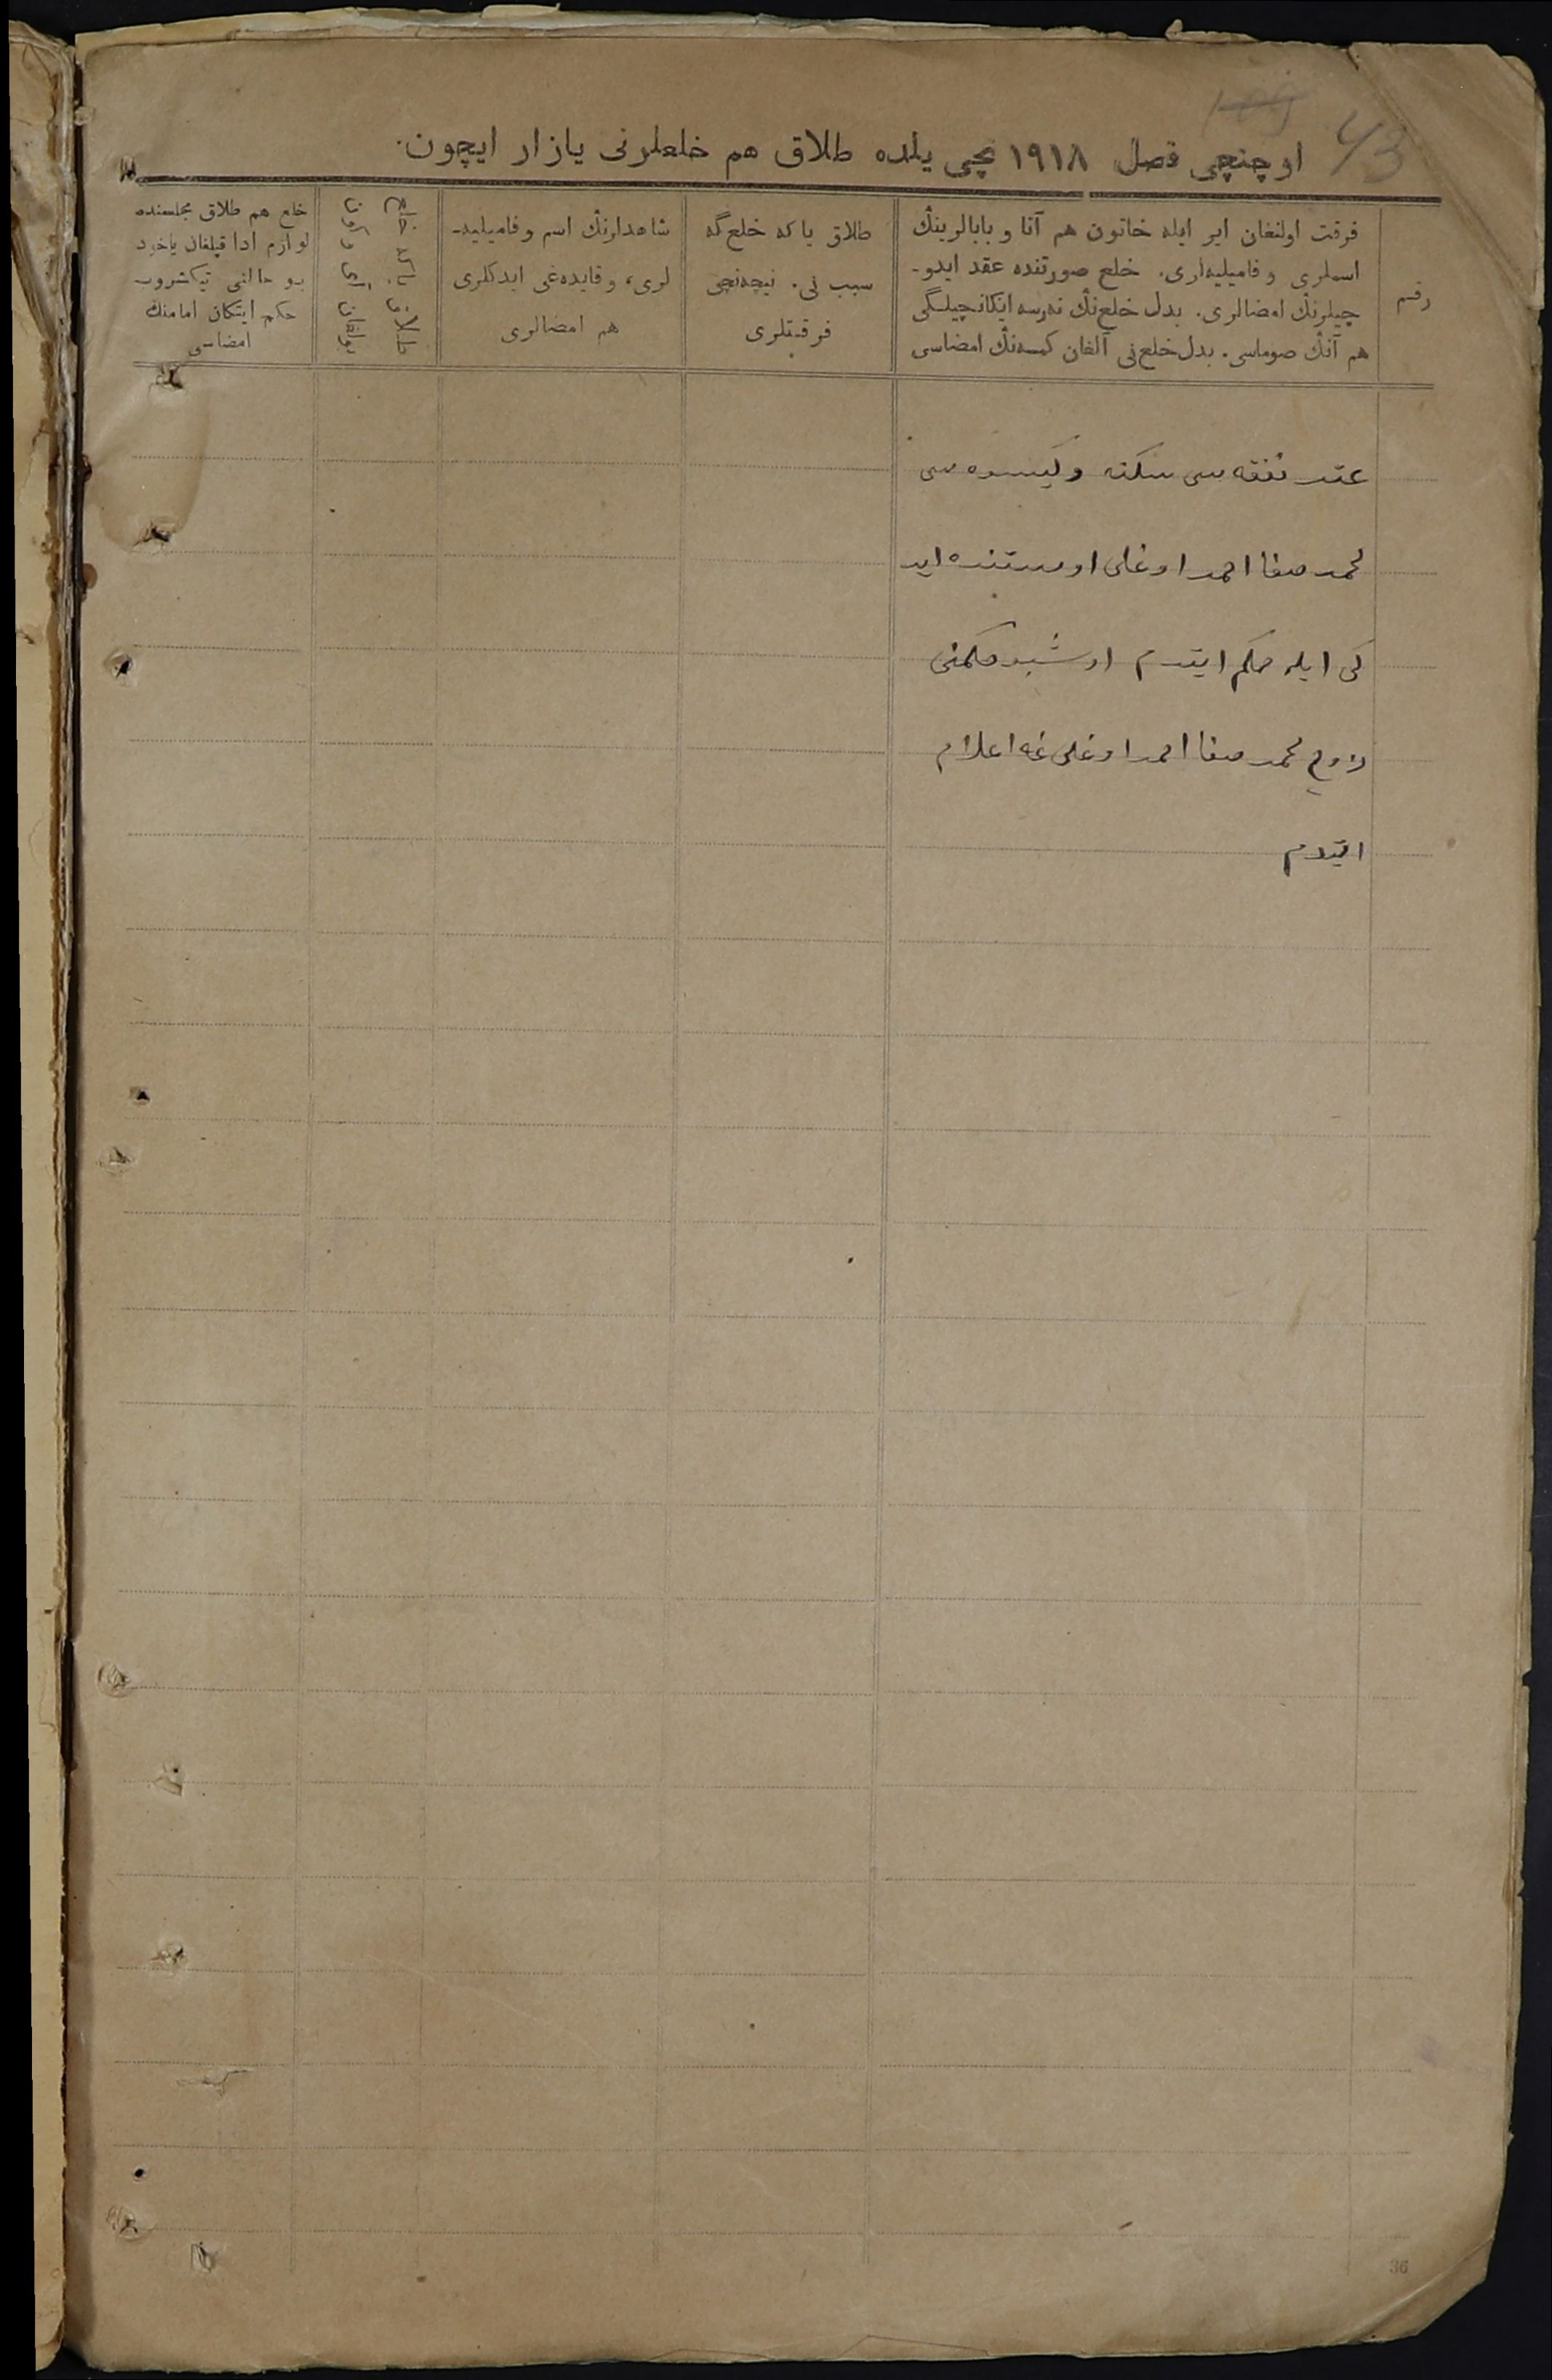 43
اوچنچی فصل ۱۹۱۸ نچی یلده طلاق هم خلعلرنی یازار ایچون.
رقم
فرقت اولنغان ایر ایله خاتون هم آتا و بابالرینڭ
اسملری و فامیلیه‌لری. خلع صورتنده عقد ایدو-
چیلرنڭ امضالری. بدل خلع‌نڭ نه‌رسه ایکانچیلگی
هم آنڭ صوماسی. بدل خلع‌نی آلغان کمسه‌نڭ امضاسی
طلاق یا که خلع گه
سبب نی. نیچه‌نچی
فرقتلری
شاهدلرنڭ اسم و فامیلیه-
لری، و قایده‌غی ایدکلری
هم امضالری
طلاق یا که خلع
بولغان آی و کون
خلع هم طلاق مجلسنده
لوازم ادا قیلغان یاخود
بو حالنی تیکشروب
حکم ایتکان امامنڭ
امضاسی
عدت نفقه سی سکنه و کیسوه سی
محمد صفا احمد اوغلی اوستنده اید
کی ایله حکم ایتدم اوشبو حکمنی
زوج محمد صفا احمد اوغلی غه اعلام
ایتدم
36